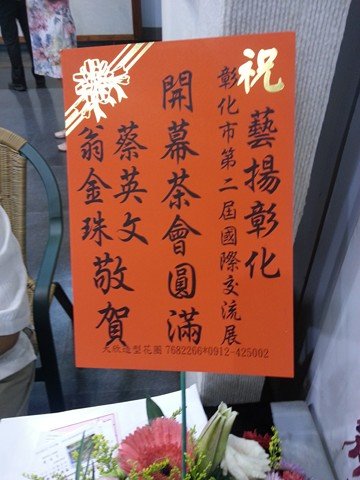 祝
藝揚彰化
彰化市第二屆國際交流展
開幕茶會圓滿
蔡英文
翁金珠
敬賀
大欣造型花園 7682266*0912-425002